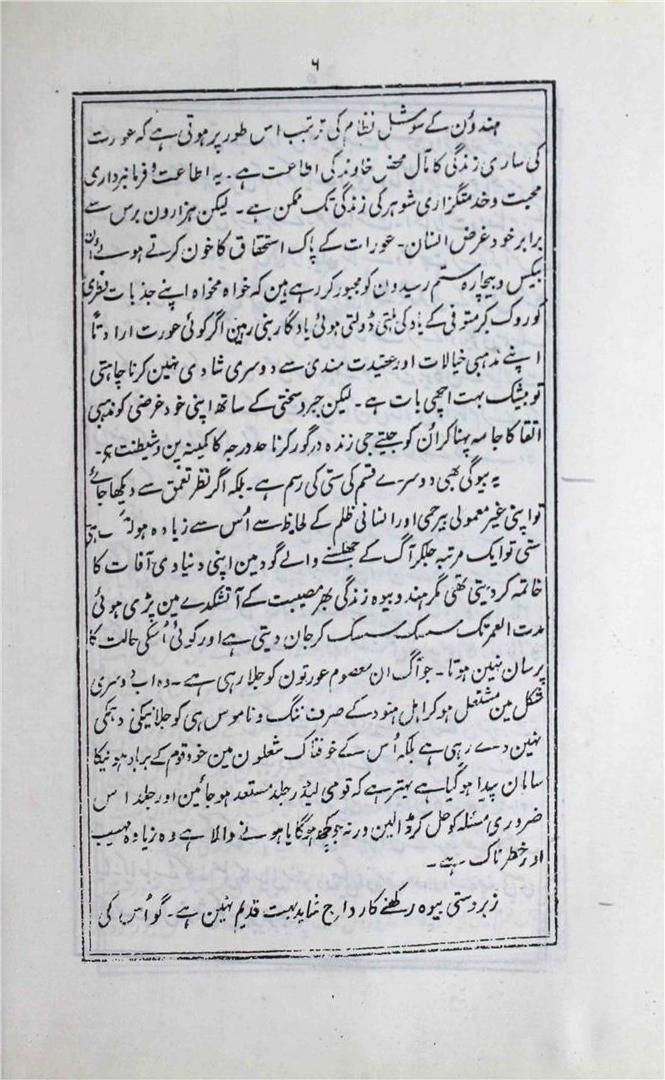 ۶
ہندوؤن کے سوشل نظام کی ترتیب اس طور پر ہوتی ہے کہ عورت
کی ساری زندگی کا مآل محض خاوند کی اطاعت ہے۔ یہ اطاعت و فرمانبرداری
محبت و خدمتگزاری شوہر کی زندگی تک ممکن ہے۔ لیکن ہزارون برس سے
برابر خود غرض انسان۔ عورات کے پاک استحقاق کا خون کرتے ہوئے اُن
بیکس و بیچارہ ستم رسیدون کو مجبور کر رہے ہین کہ خواہ مخواہ اپنے جذبات فطری
کو روک کر متوفی کے یاد کی ہلتی ڈولتی ہوئی یادگار بنی رہین اگر کوئی عورت ارادتاً
اپنے مذہبی خیالات اور عقیدت مندی سے دوسری شادی نہین کرنا چاہتی
تو بیشک بہت اچھی بات ہے۔ لیکن جبر و سختی کے ساتھ اپنی خود غرضی کو مذہبی
اتقا کا جامہ پہنا کر اُن کو جیتے جی زندہ درگور کرنا حد درجہ کا کمینہ پن و شیطنت ہے۔
یہ بیوگی بھی دوسرے قسم کی ستی کی رسم ہے۔ بلکہ اگر نظر تعمق سے دیکھا جائے
تو اپنی غیر معمولی بیرحمی اور انسانی ظلم کے لحاظ سے اُس سے زیادہ ہولناک ہی
ستی تو ایک مرتبہ جلکر آگ کے جھلسنے والے گود مین اپنی دنیاوی آفات کا
خاتمہ کر دیتی تھی مگر ہندو بیوہ زندگی بھر مصیبت کے آتشکدے مین پڑی ہوئی
مدت العمر تک سسک سسک کر جان دیتی ہے اور کوئی اُسکی حالت کا
پرسان نہین ہوتا۔ جو آگ ان معصوم عورتون کو جلا رہی ہے۔ وہ اب دوسری
شکل مین مشتعل ہو کر اہل ہنود کے صرف ننگ و ناموس ہی کو جلانیکی دہمکی
نہین دے رہی ہے بلکہ اُس کے خوفناک شعلون مین خود قوم کے برباد ہونیکا
سامان پیدا ہو گیا ہے بہتر ہے کہ قومی لیڈر جلد مستعد ہو جائین اور جلد اس
ضروری مسئلہ کو حل کر ڈالین ورنہ جو کچھ ہوگا یا ہونے والا ہے وہ زیادہ مہیب
اور خطرناک ہے۔
زبردستی بیوہ رکھنے کا رواج شاید بہت قدیم نہین ہے۔ گو اُس کی